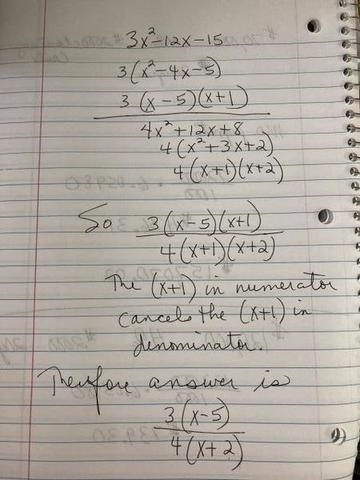 3x²-12x-15
3(x²-4x-5)
3(x-5)(x+1)
4x²+12x+8
4(x²+3x+2)
4(x+1)(x+2)
So 3(x-5)(x+1)
4(x+1)(x+2)
The (x+1) in numerator
cancels the (x+1) in
denominator.
Therefore answer is
3(x-5)
4(x+2)